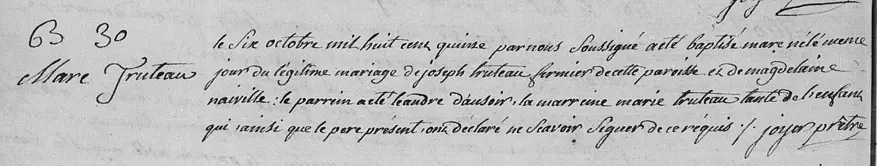 B 30
Marc Truteau
le Six octobre mil huit cent quinze par nous Soussigné a eté baptisé marc né le meme
jour du légitime mariage de joseph truteau fermier de cette paroisse et de magdelaine
naiville : le parrin a eté léandre dausoir, la marreine marie truteau tante de l'enfant
qui ainsi que le pere présent, ont déclaré ne Scavoir Signer de ce réquis ./. joyer prêtre